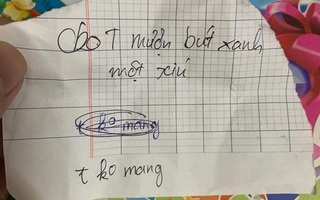 Cho T mượn bút xanh
một xíu
t ko mang
t ko mang